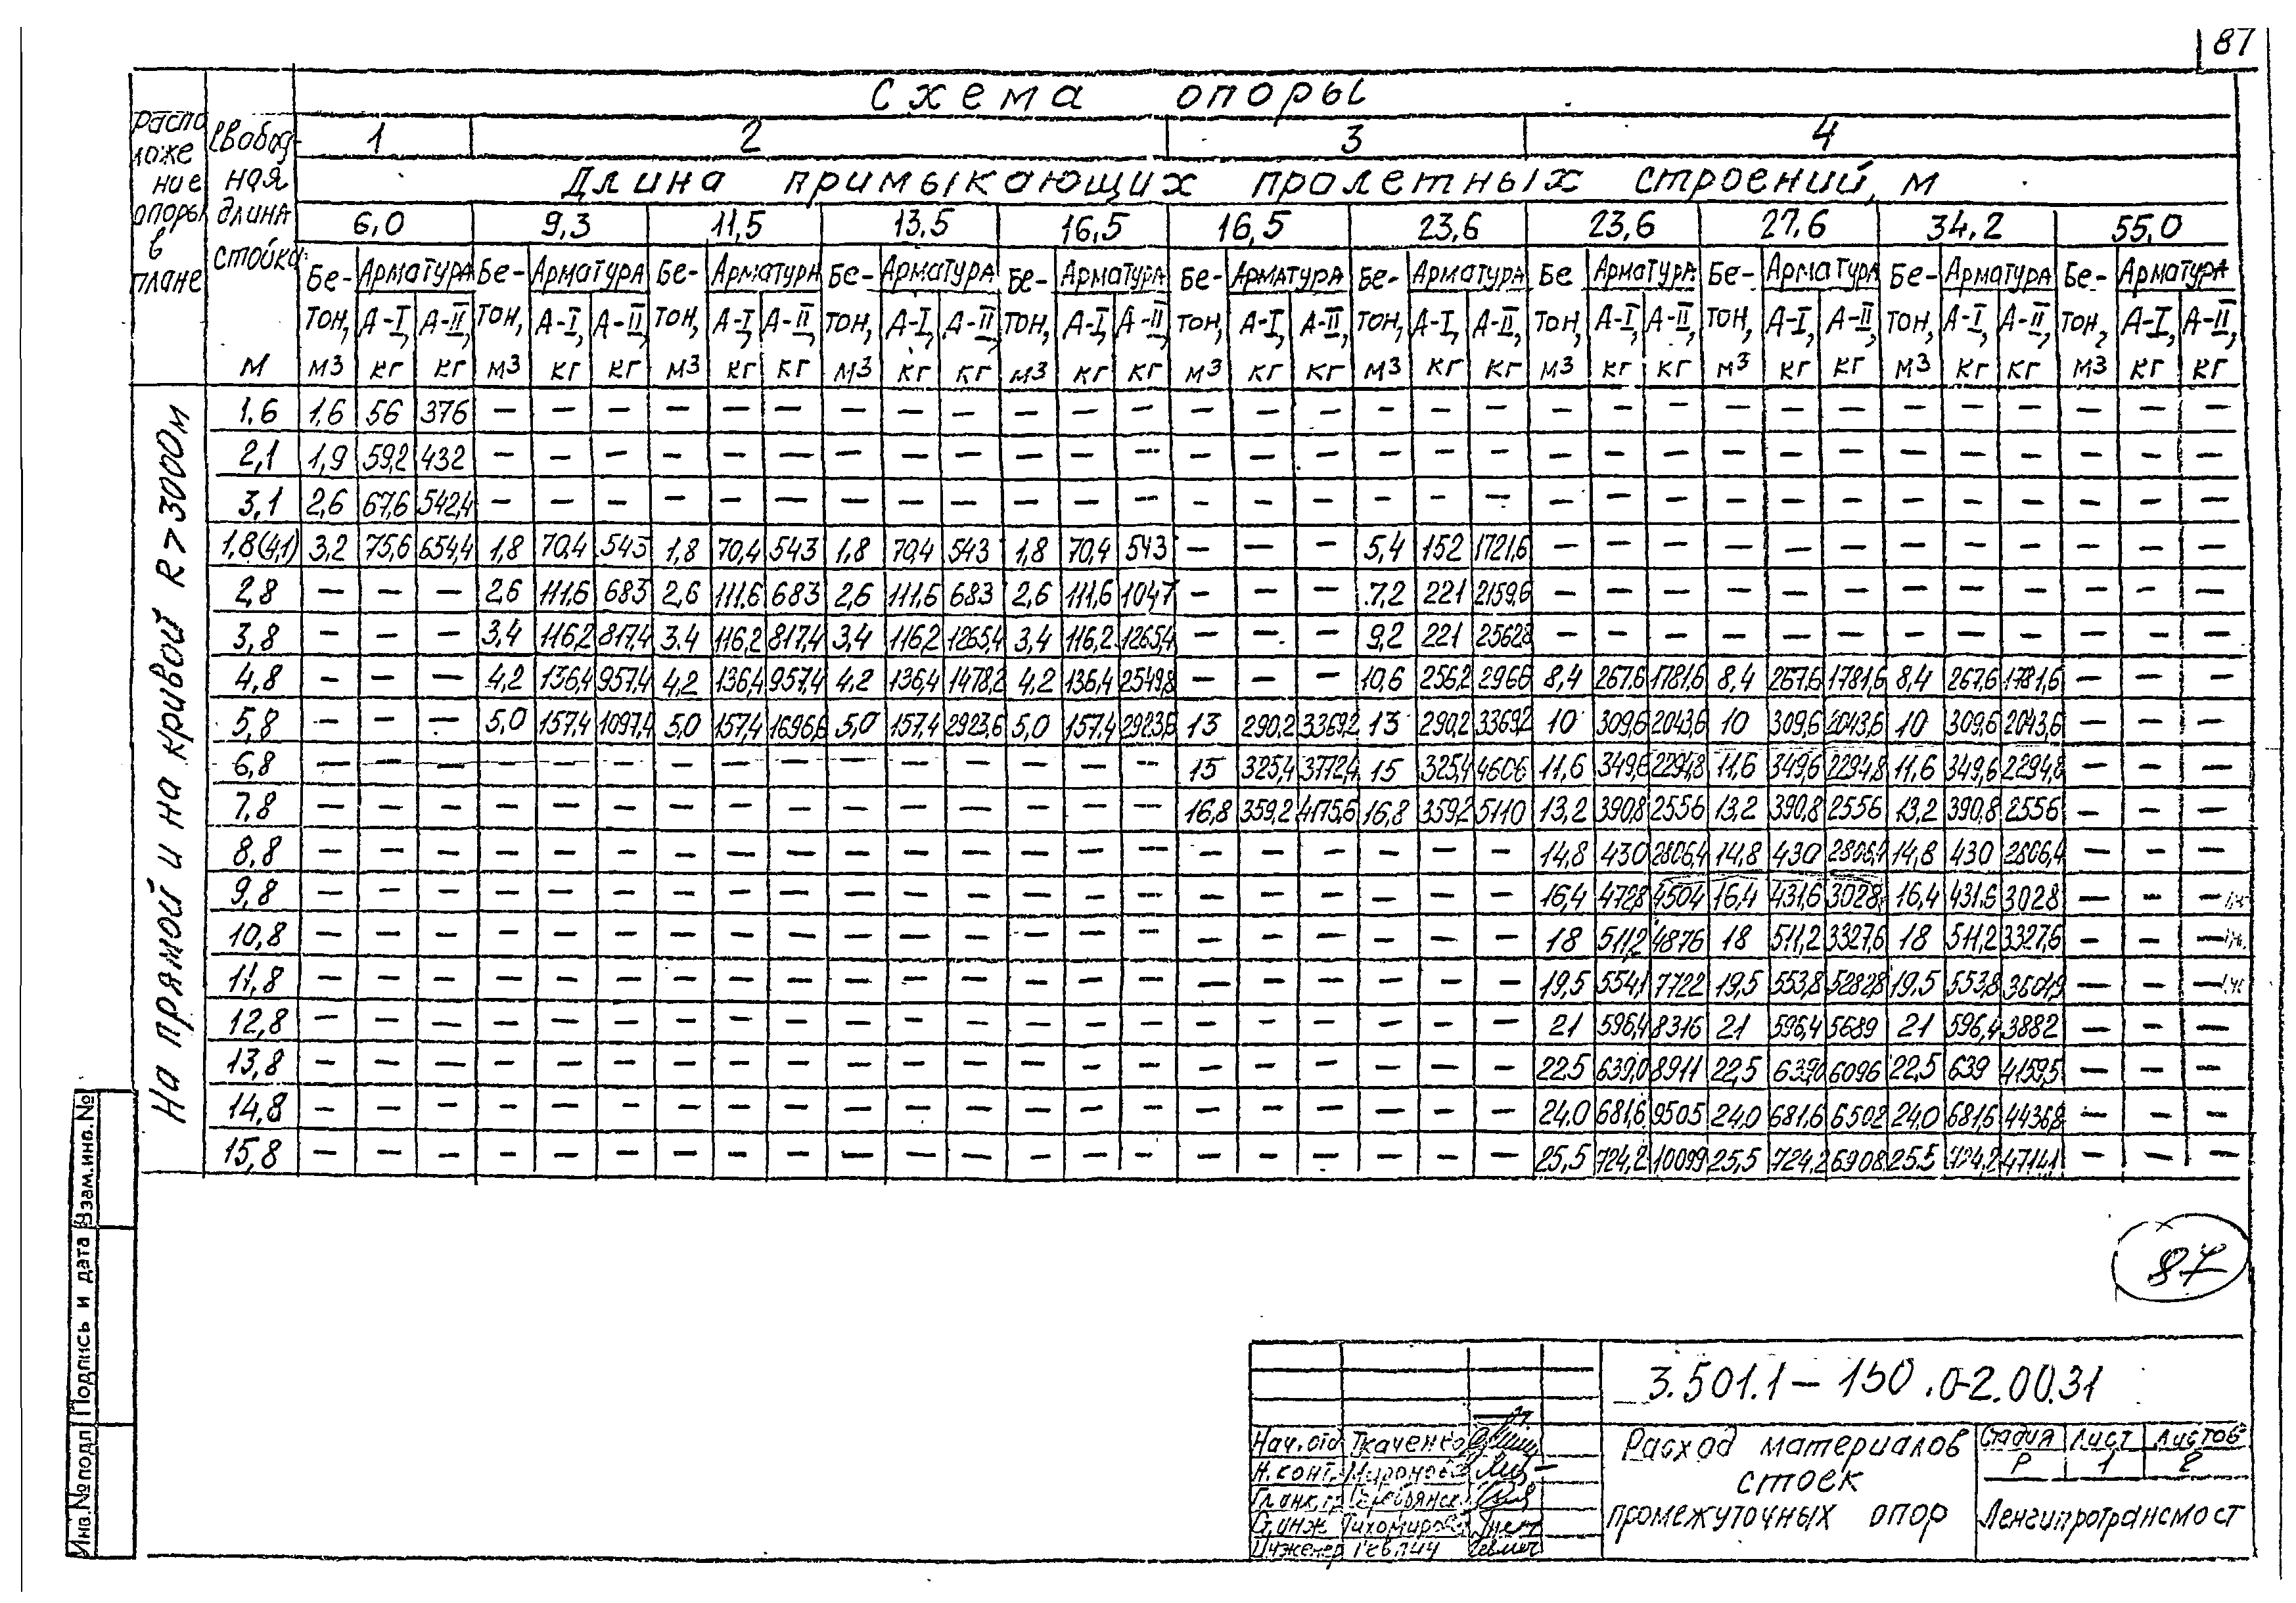 87
Схема опоры
Располо жение опоры в плане
Свобод- ная длина стойки, м
1 2 3 4
Длина примыкающих пролетных строений, м
6,0 9,3 11,5 13,5 16,5 16,5 23,6 23,6 27,6 34,2 55,0
Бе- Арматура Бе- Арматура Бе- Арматура Бе- Арматура Бе- Арматура Бе- Арматура Бе- Арматура Бе Арматура Бе- Арматура Бе- Арматура Бе- Арматура
тон, А-I, А-II, тон, А-I, А-II, тон, А-I, А-II, тон, А-I, А-II, тон, А-I, А-II, тон, А-I, А-II, тон, А-I, А-II, тон, А-I, А-II, тон, А-I, А-II, тон, А-I, А-II, тон, А-I, А-II,
м3 кг кг м3 кг кг м3 кг кг м3 кг кг м3 кг кг м3 кг кг м3 кг кг м3 кг кг м3 кг кг м3 кг кг м3 кг кг
На прямой и на кривой R>3000м
1,6 1,6 56 376 — — — — — — — — — — — — — — — — — — — — — — — — — — — — — —
2,1 1,9 59,2 432 — — — — — — — — — — — — — — — — — — — — — — — — — — — — — —
3,1 2,6 67,6 542,4 — — — — — — — — — — — — — — — — — — — — — — — — — — — — — —
1,8(4,1) 3,2 75,6 654,4 1,8 70,4 543 1,8 70,4 543 1,8 70,4 543 1,8 70,4 543 — — — 5,4 152 1721,6 — — — — — — — — — — — —
2,8 — — — 2,6 111,6 683 2,6 111,6 683 2,6 111,6 683 2,6 111,6 1047 — — — 7,2 221 2159,6 — — — — — — — — — — — —
3,8 — — — 3,4 116,2 817,4 3,4 116,2 817,4 3,4 116,2 1265,4 3,4 116,2 1265,4 — — — 9,2 221 2562,8 — — — — — — — — — — — —
4,8 — — — 4,2 136,4 957,4 4,2 136,4 957,4 4,2 136,4 1478,2 4,2 136,4 2549,8 — — — 10,6 256,2 2966 8,4 267,6 1781,6 8,4 267,6 1781,6 8,4 267,6 1781,6 — — —
5,8 — — — 5,0 157,4 1097,4 5,0 157,4 1696,6 5,0 157,4 2923,6 5,0 157,4 2923,6 13 290,2 3369,2 13 290,2 3369,2 10 309,6 2043,6 10 309,6 2043,6 10 309,6 2043,6 — — —
6,8 — — — — — — — — — — — — — — — 15 325,4 3772,4 15 325,4 4606 11,6 349,6 2294,8 11,6 349,6 2294,8 11,6 349,6 2294,8 — — —
7,8 — — — — — — — — — — — — — — — 16,8 359,2 4175,6 16,8 359,2 5110 13,2 390,8 2556 13,2 390,8 2556 13,2 390,8 2556 — — —
8,8 — — — — — — — — — — — — — — — — — — — — — 14,8 430 2806,4 14,8 430 2806,4 14,8 430 2806,4 — — —
9,8 — — — — — — — — — — — — — — — — — — — — — 16,4 472,8 4504 16,4 431,6 3028 16,4 431,6 3028 — — —
10,8 — — — — — — — — — — — — — — — — — — — — — 18 511,2 4876 18 511,2 3327,6 18 511,2 3327,6 — — —
11,8 — — — — — — — — — — — — — — — — — — — — — 19,5 554,1 7722 19,5 553,8 5282,8 19,5 553,8 3604,9 — — —
12,8 — — — — — — — — — — — — — — — — — — — — — 21 596,4 8316 21 596,4 5689 21 596,4 3882 — — —
13,8 — — — — — — — — — — — — — — — — — — — — — 22,5 639,0 8911 22,5 639,0 6096 22,5 639 4159,5 — — —
14,8 — — — — — — — — — — — — — — — — — — — — — 24,0 681,6 9505 24,0 681,6 6502 24,0 681,6 4436,8 — — —
15,8 — — — — — — — — — — — — — — — — — — — — — 25,5 724,2 10099 25,5 724,2 6908 25,5 724,2 4714,1 — — —
87
Инв.№ подл Подпись и дата Взам.инв.№
3.501.1-150.0-2.00.31
Нач.отд Ткаченко
Н.конт. Миронова
Гл.инж.пр
Ст.инж Тихомирова
Инженер Гевлич
Расход материалов
стоек
промежуточных опор
Стадия Лист Листов
Р 1 2
Ленгипротрансмост